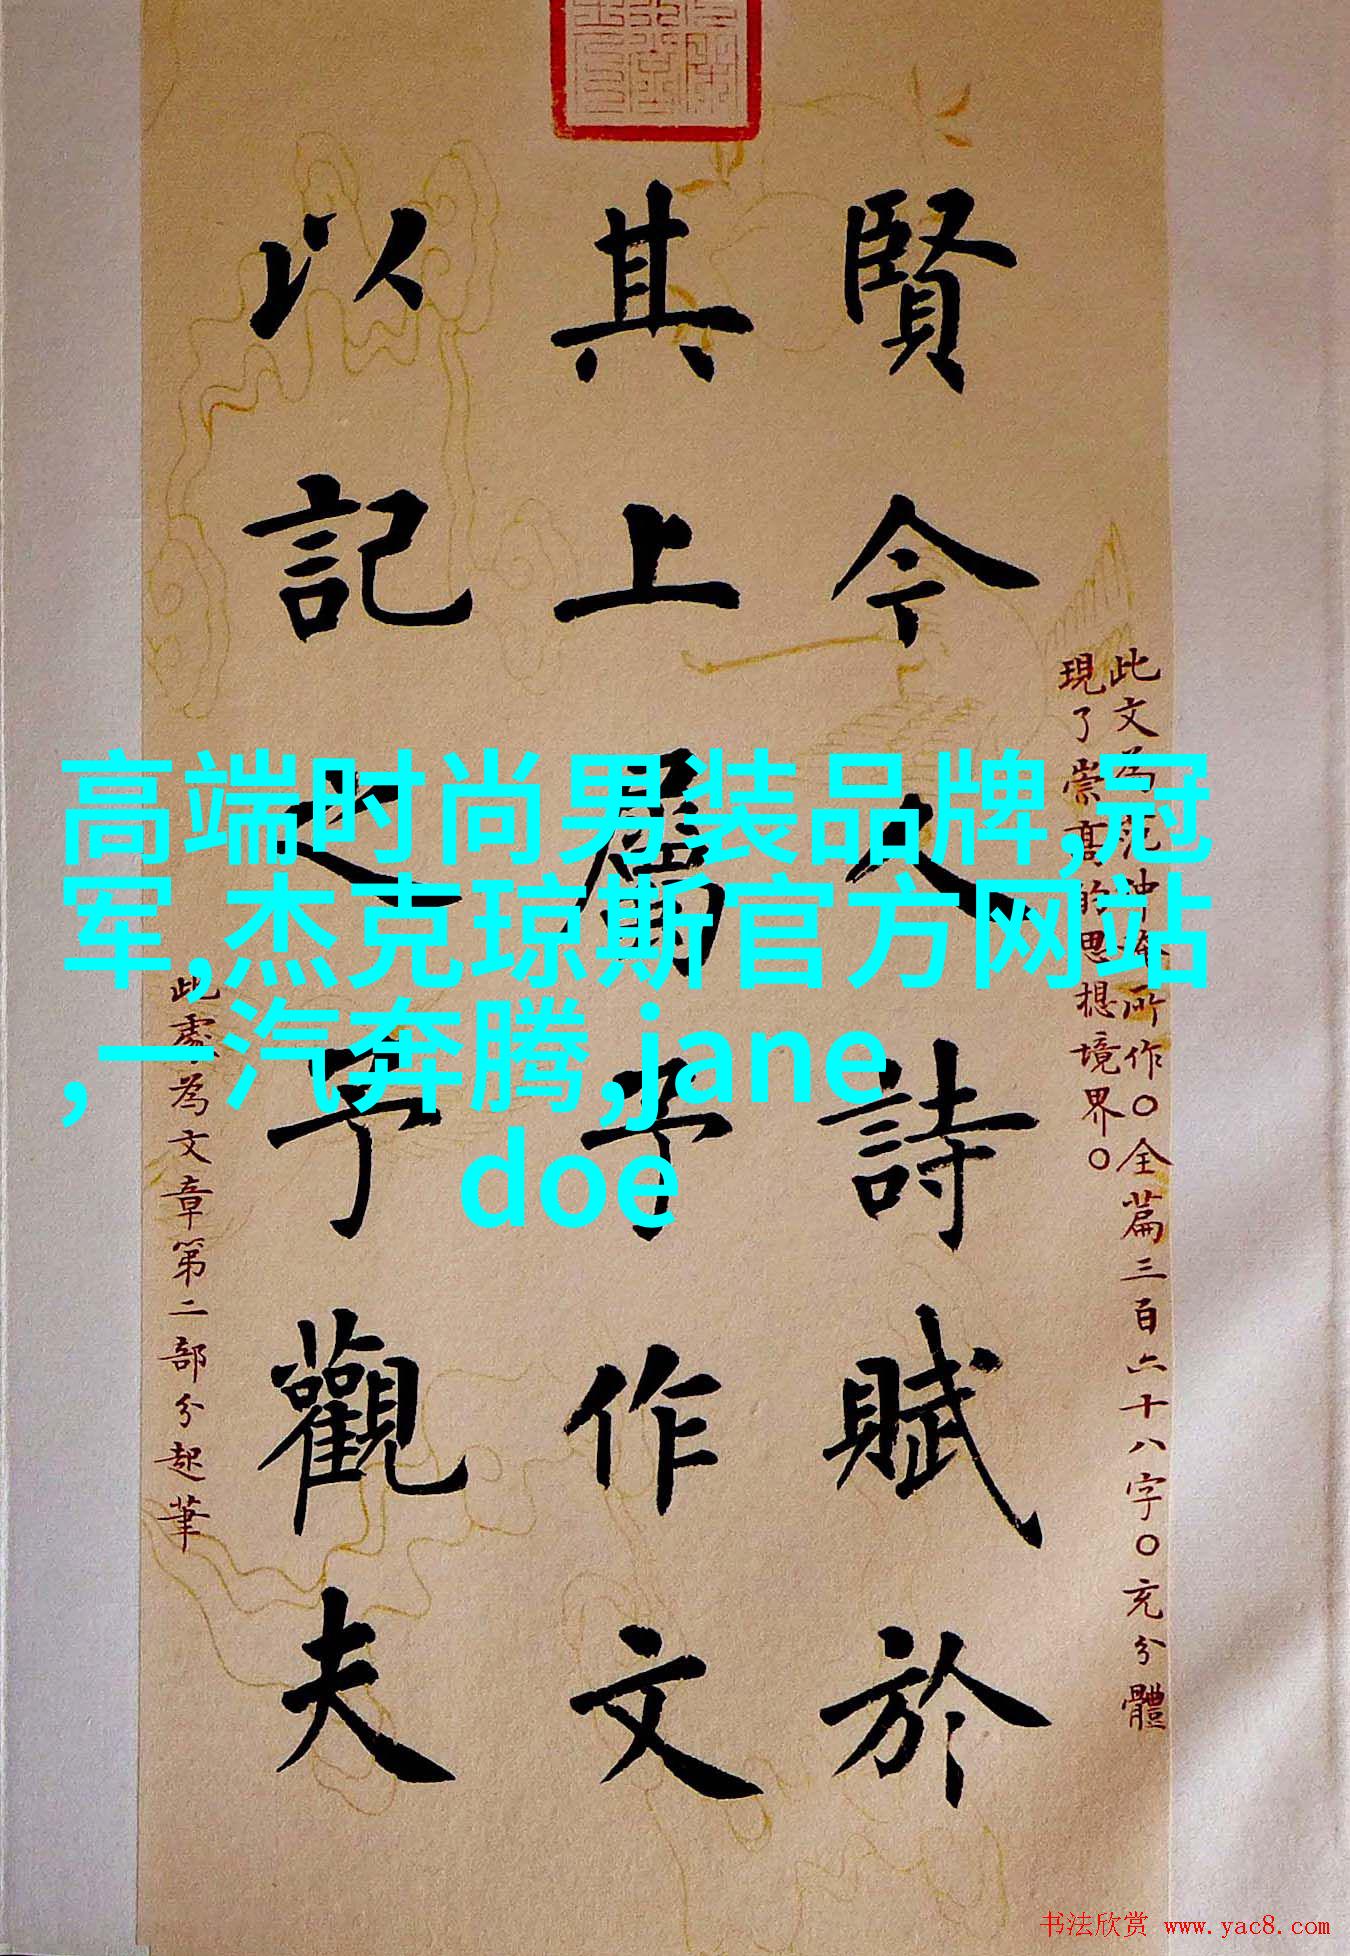 賢今人詩賦於
其上屬予作文
以記之予觀夫
此文為范沖奄所作〇全篇三百六十八字〇充分體
現了崇高的思想境界〇
此處為文章第二部分起筆
高端时尚男装品牌,冠
军,杰克琼斯官方网站
,一汽奔腾,jane
doe
书法欣赏 www.yac8.com